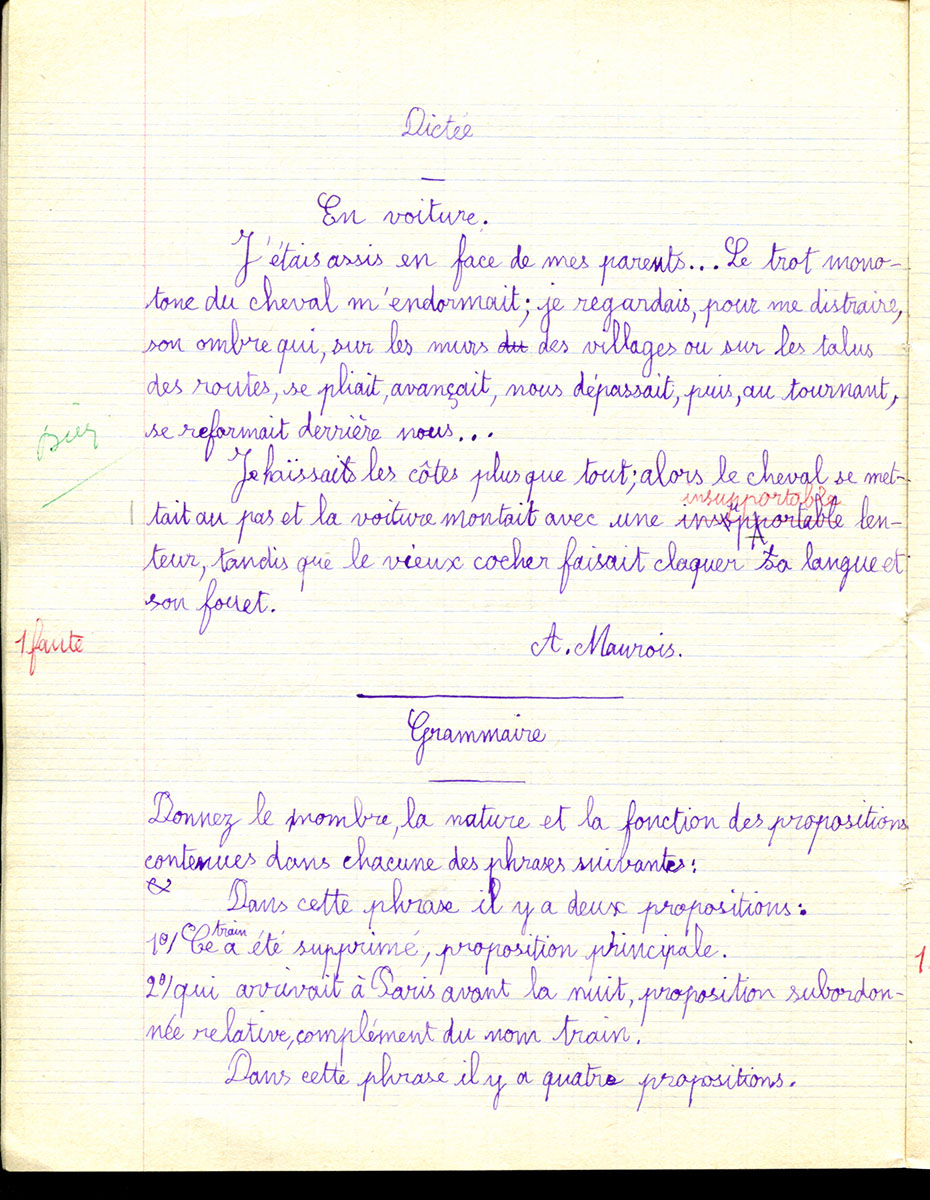 Dictée
En voiture.
J'étais assis en face de mes parents... Le trot mono-
tone du cheval m'endormait; je regardais, pour me distraire,
son ombre qui, sur les murs du des villages ou sur les talus
des routes, se pliait, avançait, nous dépassait, puis, au tournant,
se reformait derrière nous...
bien
Je haïssais les côtes plus que tout; alors le cheval se met-
insupportable
tait au pas et la voiture montait avec une insupportable len-
teur, tandis que le vieux cocher faisait claquer sa langue et
son fouet.
1 faute
A. Maurois.
Grammaire
Donnez le nombre, la nature et la fonction des propositions
contenues dans chacune des phrases suivantes:
Dans cette phrase il y a deux propositions:
train
1º/ Ce a été supprimé, proposition principale.
2º/ qui arrivait à Paris avant la nuit, proposition subordon-
née relative, complément du nom train.
Dans cette phrase il y a quatre propositions.